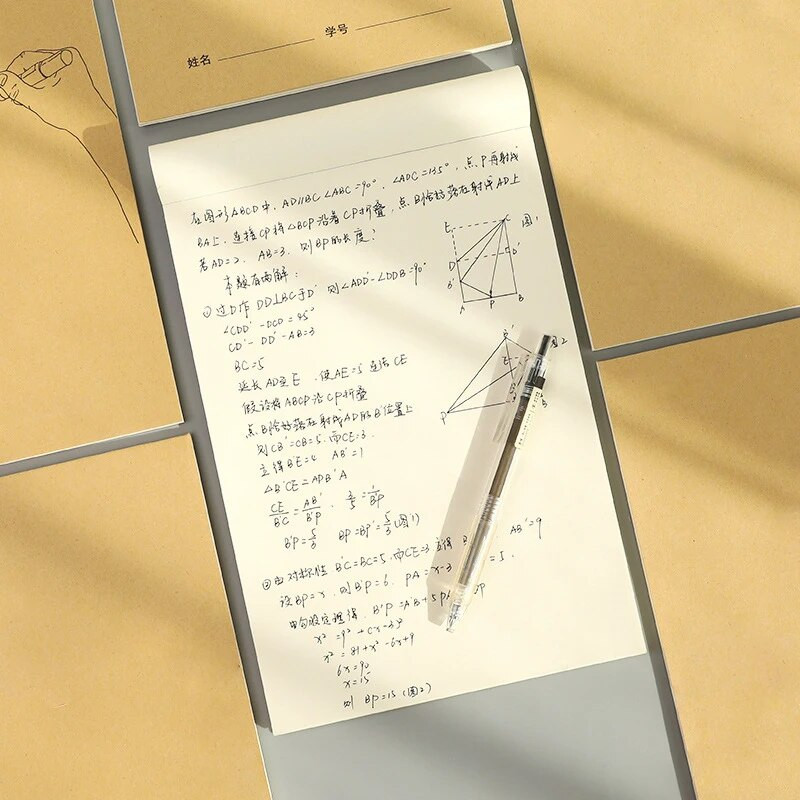 姓名 学号
在图形ABCD中, AD∥BC ∠ABC=90°, ∠ADC=135°, 点P再射线
BA上, 连接CP将△BCP沿着CP折叠, 点B恰好落在射线AD上
若AD=2, AB=3, 则BP的长度?
本题有两解:
① 过D作 DD⊥BC于D' 则∠ADD'-∠DDB=90°
∠CDD'-DCD=45°
CD'-DD'-AB=3
BC=5
延长AD至E, 使AE=5 连结CE
假设将ABCP沿CP折叠
点B恰好落在射线AD的B'位置上
则CB'=CB=5, 而CE=3
立得B'E=4 AB'=1
△B'CE=APB'A
CE/B'C=AB'/B'P, 3/5=1/B'P
B'P=5/3 BP=BP'=5/3(图1)
②由对称性 B'C=BC=5, 而CE=3 立得 AB'=9
设BP=x, 则B'P=6, PA=x-3 =5.
由勾股定理得, B'P=A'B+5PA
x²=9²+(x-3)²
x²=81+x²-6x+9
6x=90
x=15
则 BP=15 (图2)
E C 图1
D D'
B'
A P B
B' 图2
E
P